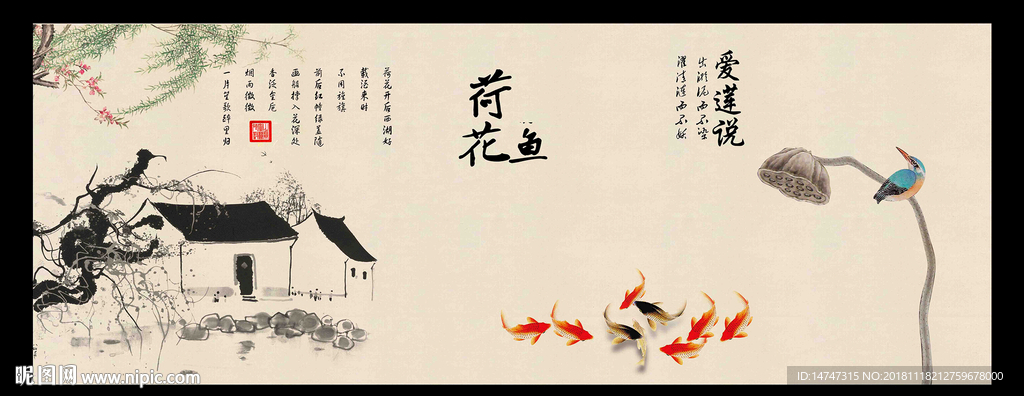 爱莲说
出淤泥而不染
濯清涟而不妖
荷花
鱼
荷花开后西湖好
载酒来时
不用旌旗
前后红幢绿盖随
画船撑入花深处
香泛金卮
烟雨微微
一片笙歌醉里归
昵图网 www.nipic.com
ID:14747315 NO:20181118212759678000